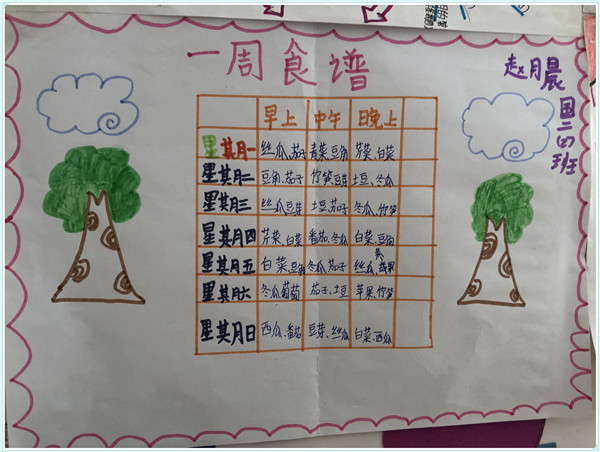 一周食谱
赵月晨
国二(2)班
早上 中午 晚上
星其月一 丝瓜、茄子 青菜、豆角 芹菜、白菜
星其月二 豆角、茄子 竹笋、豆芽 土豆、冬瓜
星其月三 丝瓜、豆芽 土豆、茄子 冬瓜、竹笋
星其月四 芹菜、白菜 番茄、冬瓜 白菜、豆角
星其月五 白菜、豆角 冬瓜、茄子 丝瓜、苹果
星其月六 冬瓜、葡萄 茄子、土豆 苹果、竹笋
星其月日 西瓜、番茄 豆芽、丝瓜 白菜、西瓜